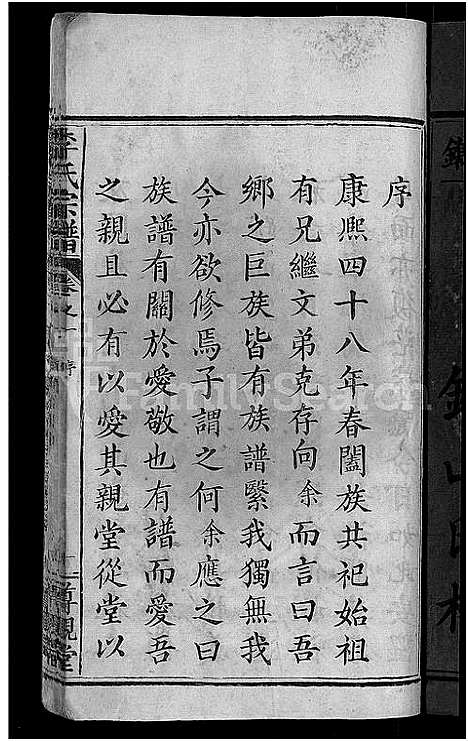 序
康熙四十八年春闔族共祀始祖
有兄繼文弟克存向余而言曰吾
鄉之巨族皆有族譜繄我獨無我
今亦欲修焉子謂之何余應之曰
族譜有關於愛敬也有譜而愛吾
之親且必有以愛其親堂從堂以
李氏宗譜 卷之一 序 尊親堂
FamilySearch